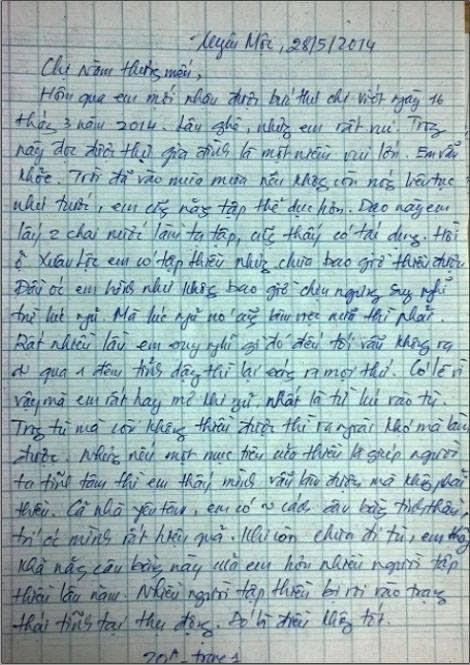 Xuyên Mộc, 28/5/2014
Chị Năm thương mến,
Hôm qua em mới nhận được bức thư chị viết ngày 16
tháng 3 năm 2014. Lâu ghê, nhưng em rất vui. Trong
này đọc được thư gia đình là một niềm vui lớn. Em vẫn
khỏe. Trời đã vào mùa mưa nên không còn nóng liên tục
như trước, em cũng năng tập thể dục hơn. Dạo này em
lấy 2 chai nước làm tạ tập, cũng thấy có tác dụng. Hồi
ở Xuân Lộc em có tập thiền nhưng chưa bao giờ thiền được.
Đầu óc em hình như không bao giờ chịu ngưng suy nghĩ
trừ lúc ngủ. Mà lúc ngủ nó cũng làm việc nữa thì phải.
Rất nhiều lần em suy nghĩ gì đó đến tối vẫn không ra
qua 1 đêm tỉnh dậy thì lại sáng ra mọi thứ. Có lẽ vì
vậy mà em rất hay mơ khi ngủ, nhất là từ lúc vào tù.
Trong tù mà còn không thiền được thì ra ngoài khó mà làm
được. Nhưng nếu một mục tiêu của thiền là giúp người
ta tĩnh tâm thì em thấy mình vẫn làm được mà không phải
thiền. Cả nhà yên tâm, em có cách cân bằng tinh thần,
trí óc mình rất hiệu quả. Khi còn chưa đi tù, em thấy
khả năng cân bằng này của em hơn nhiều người tập
thiền lâu năm. Nhiều người tập thiền bị rơi vào trạng
thái tĩnh tại thụ động. Đó là điều không tốt.
trang 1